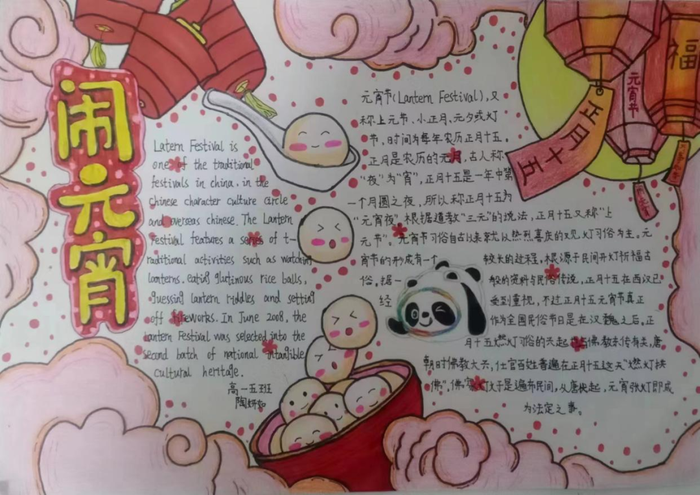 闹元宵
Latern Festival is
one of the traditional
festivals in china, in the
Chinese character culture circle
and overseas chinese. The Lantern
Festival features a series of t-
raditional activities such as watching
lanterns, eating glutinous rice balls,
guessing lantern riddles and setting
off fireworks. In June 2008, the
Lantern Festival was selected into the
second batch of national intangible
cultural heritage.
高一五班
元宵节(Lantern Festival), 又
称上元节、小正月、元夕或灯
节, 时间为每年农历正月十五,
正月是农历的元月, 古人称
"夜"为"宵", 正月十五是一年中第
一个月圆之夜, 所以称正月十五为
"元宵夜"。根据道教"三元"的说法, 正月十五又称"上
元节"。元宵节习俗自古以来就以热烈喜庆的观灯习俗为主。元
宵节的形成有一个 较长的过程, 根源于民间开灯祈福古
俗, 据一 般的资料与民俗传说, 正月十五在西汉已
经 受到重视, 不过正月十五元宵节真正
作为全国民俗节日是在汉魏之后, 正
月十五燃灯习俗的兴起也与佛教东传有关, 唐
朝时佛教大兴, 仕官百姓普遍在正月十五这天"燃灯供
佛", 佛家灯火于是遍布民间, 从唐代起, 元宵张灯即成
为法定之事。
正月十五
元宵节
福